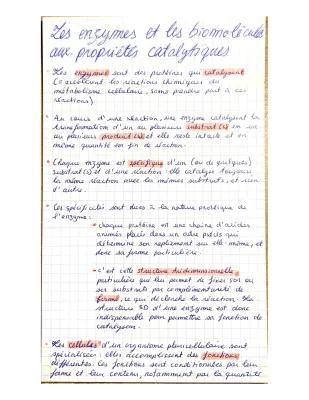 Les enzymes et les biomolécules
aux propriétés catalytiques
Les enzymes sont des protéines qui catalysent
(= accélèrent les réactions chimiques du
métabolisme cellulaire, sans prendre part à ces
réactions)
Au cours d'une réaction, une enzyme catalysent la
transformation d'un ou plusieurs substrat(s) en un
ou plusieurs produit(s) et elle reste intacte et en
même quantité en fin de réaction.
Chaque enzyme est spécifique d'un (ou de quelques)
substrat(s) et d'une réaction : elle catalyse toujours
la même réaction avec les mêmes substrats, et rien
d'autre.
Ces spécificités sont dues à la nature protéique de
l'enzyme :
chaque protéine est une chaîne d'acides
aminés placés dans un ordre précis qui
détermine son repliement sur elle-même, et
donc sa forme particulière.
c'est cette structure tridimensionnelle
particulière qui lui permet de fixer son ou
ses substrats par complémentarité de
forme, ce qui déclenche la réaction. La
structure 3D d'une enzyme est donc
indispensable pour permettre sa fonction de
catalyseur.
Les cellules d'un organisme pluricellulaire sont
spécialisées : elles accomplissent des fonctions
différentes. Les fonctions sont conditionnées par leur
forme et leur contenu, notamment par la quantité